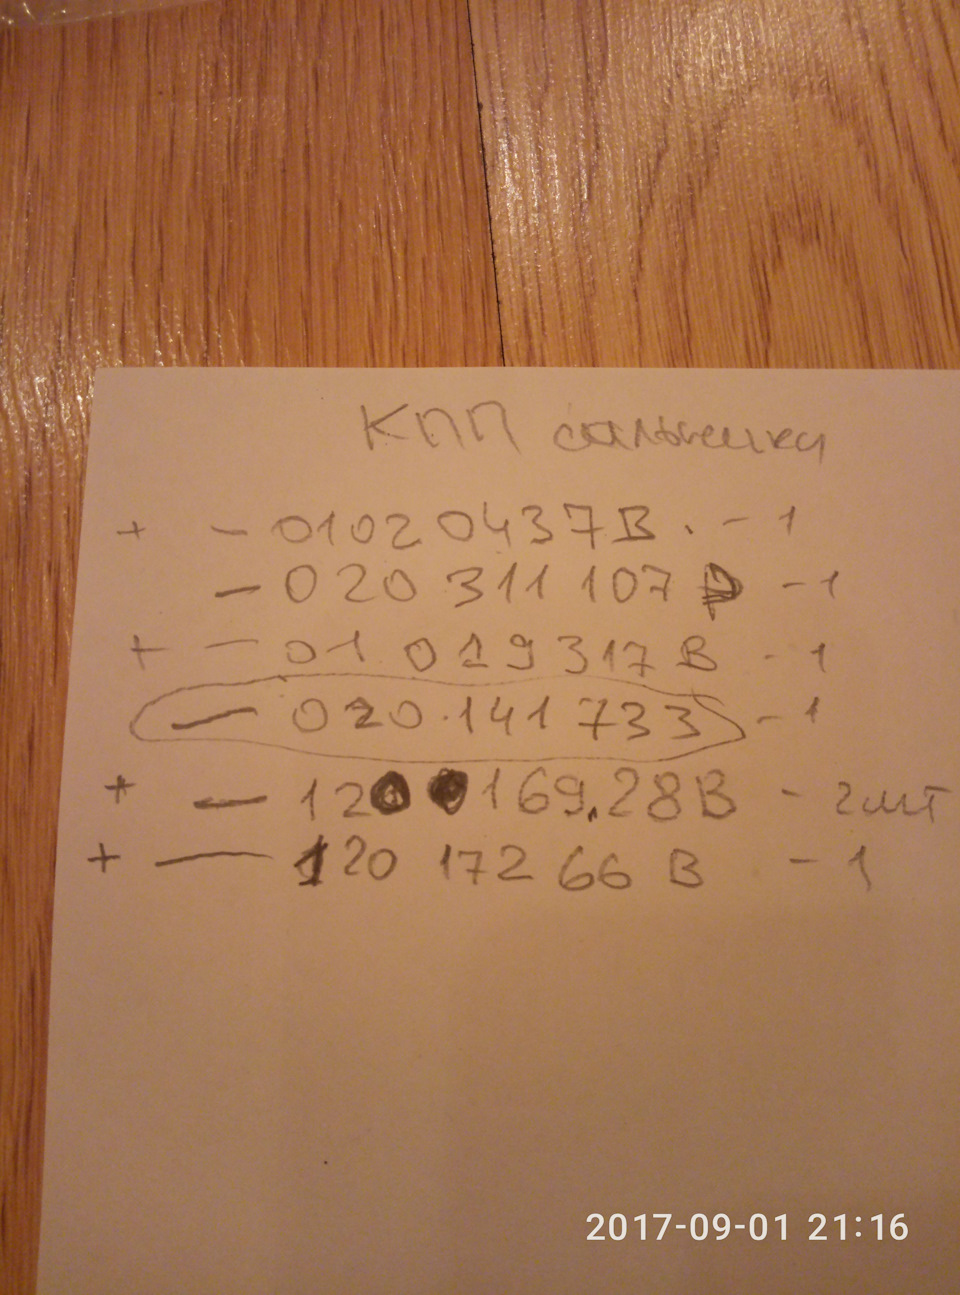 КПП сальники
+ - 01020437В. - 1
- 020 311 107 - 1
+ - 01 019 317 В - 1
- 020.141 733 - 1
+ - 120 169.28В - 2шт
+ - 120 172 66 В - 1
2017-09-01 21:16